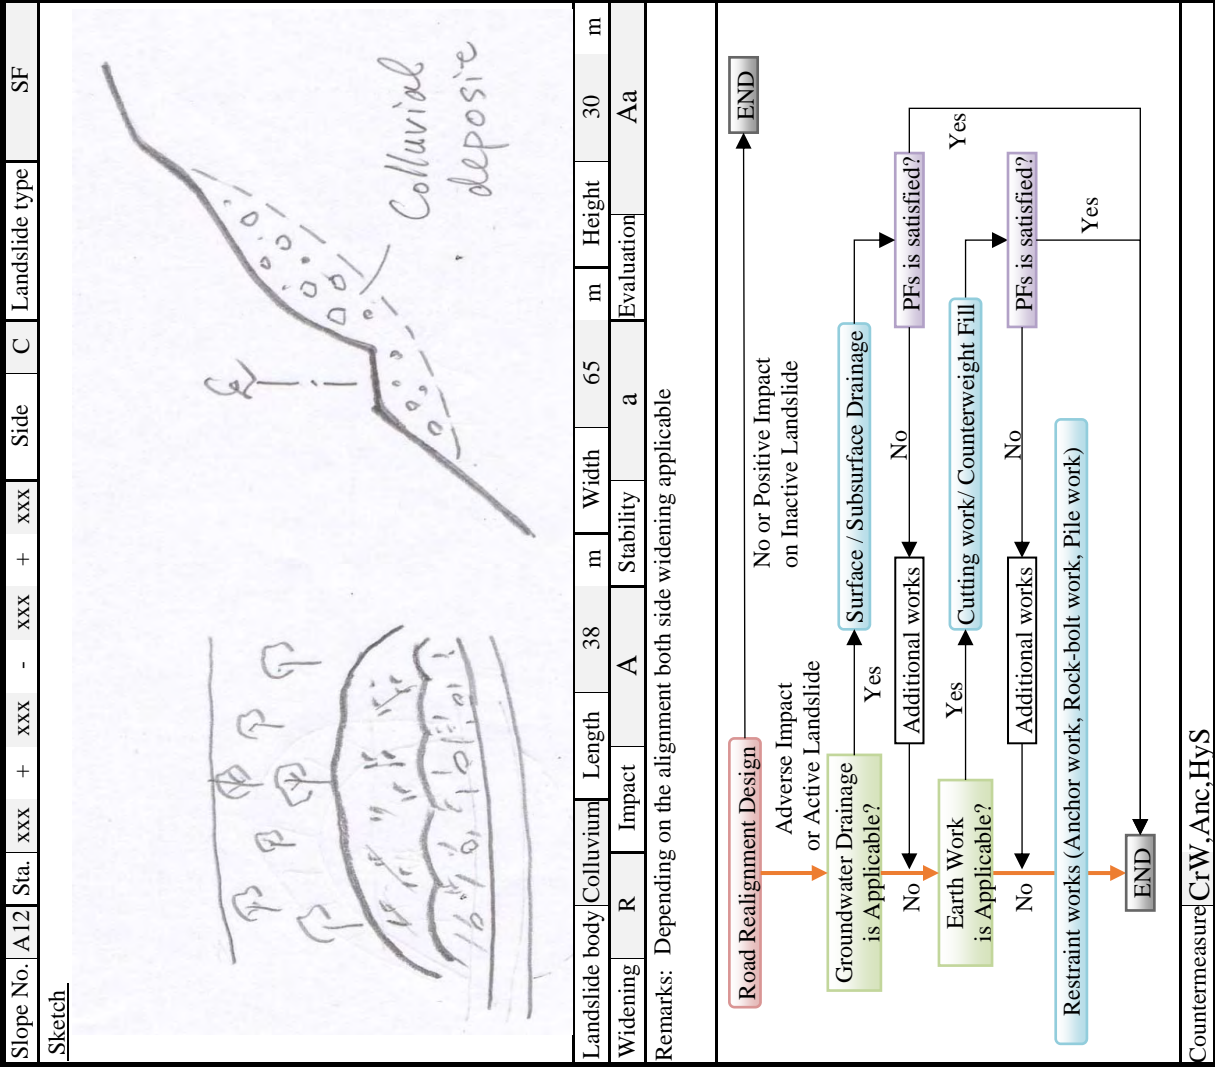 Slope No. A12 Sta. xxx + xxx - xxx + xxx Side C Landslide type SF
Sketch
Colluvial
deposie
Landslide body Colluvium Length 38 m Width 65 m Height 30 m
Widening R Impact A Stability a Evaluation Aa
Remarks: Depending on the alignment both side widening applicable
Road Realignment Design
END
No or Positive Impact
on Inactive Landslide
Adverse Impact
or Active Landslide
Groundwater Drainage
is Applicable?
Yes
Surface / Subsurface Drainage
No
Additional works
No
PFs is satisfied?
Yes
Earth Work
is Applicable?
Yes
Cutting work/ Counterweight Fill
No
Additional works
No
PFs is satisfied?
Yes
Restraint works (Anchor work, Rock-bolt work, Pile work)
END
Countermeasure CrW,Anc,HyS